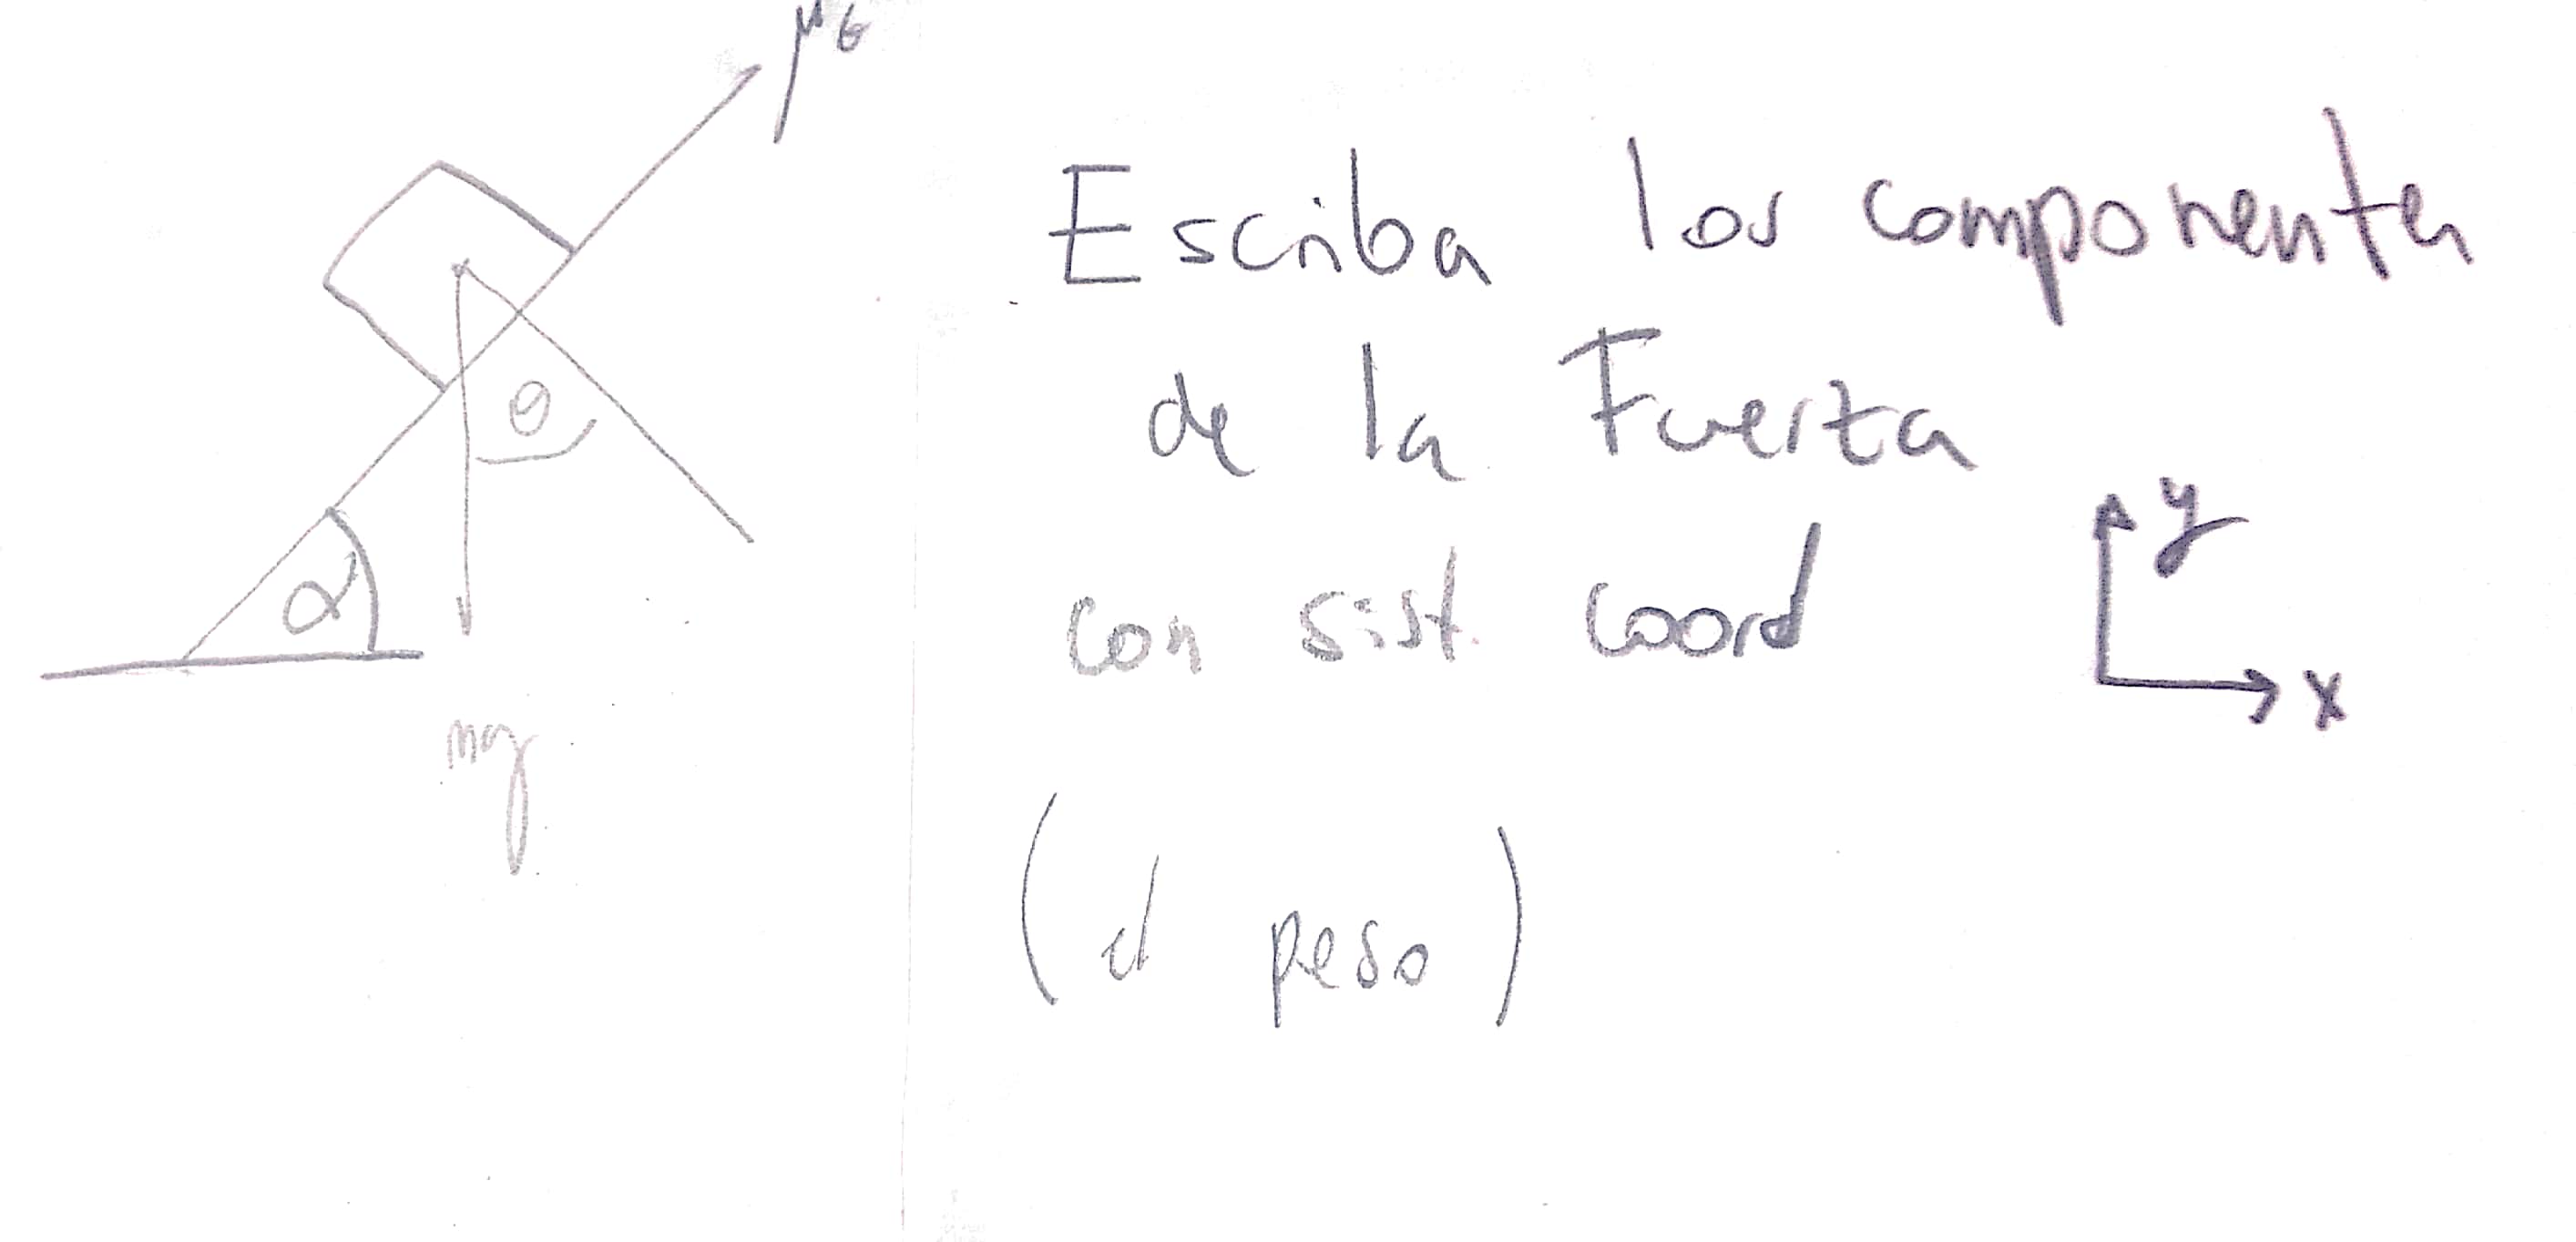 μG
θ
α
mg
Escriba los componentes
de la Fuerza
con sist. coord
y
x
(el peso)